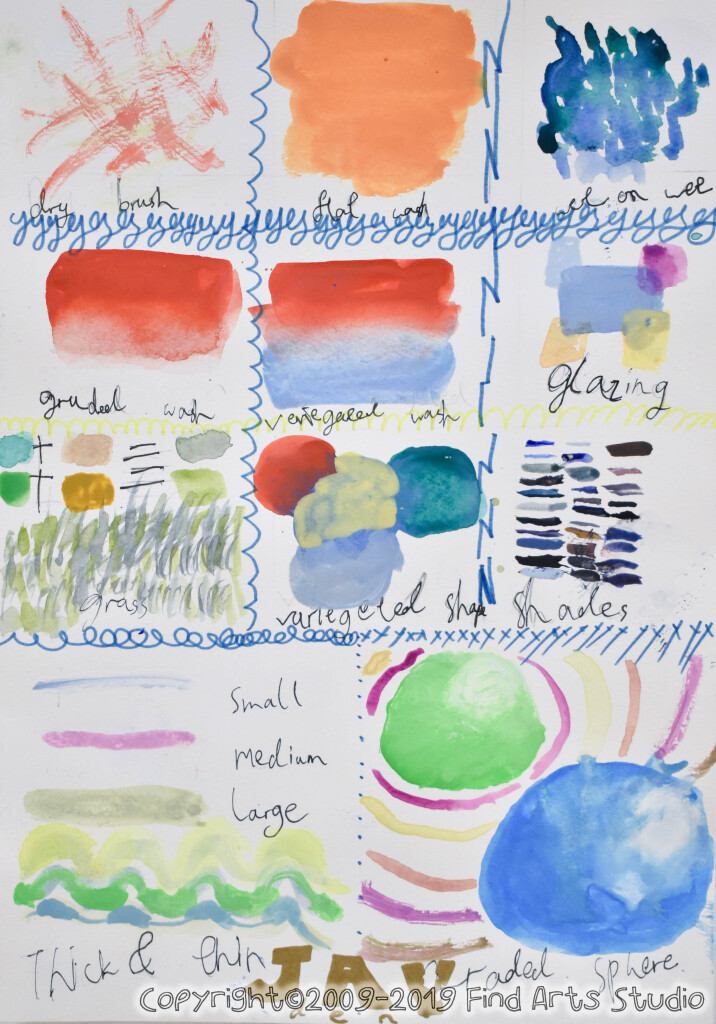 dry brush
flat wash
wet on wet
gruded wash
veriegated wash
glazing
grass
variegeted shape
shades
small
medium
large
Thick & thin
faded sphere.
JAY
den
Copyright©2009-2019 Find Arts Studio